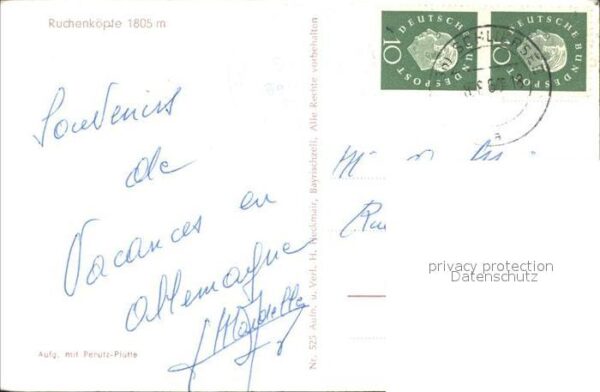 Ruchenköpfe 1805 m
Souvenirs
de
Vacances en
allemagne
Aufg. mit Perutz-Platte
Nr. 525 Aufn. u. Verl. H. Heckmair, Bayrischzell, Alle Rechte vorbehalten
10 DEUTSCHE BUNDESPOST
10 DEUTSCHE BUNDESPOST
SCHLIERSEE
privacy protection
Datenschutz